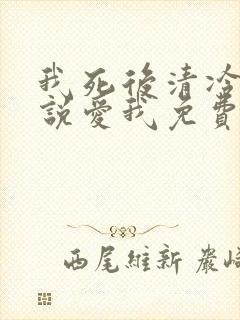 我死後清冷
說愛我免費
西尾維新 嚴崎